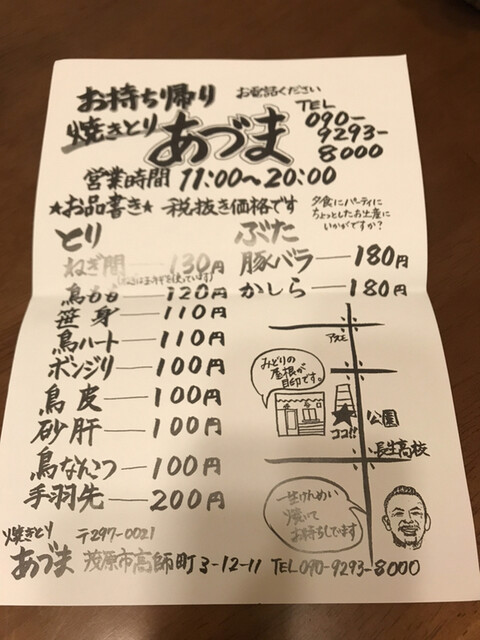 お持ち帰り
お電話ください
焼きとり
あづま
TEL
090-
9293-
8000
営業時間 11:00～20:00
★お品書き★ 税抜き価格です
夕食にパーティに
ちょっとしたお土産に
いかがですか?
とり
ねぎ間——130円
鳥もも——120円
笹身——110円
鳥ハート——110円
ボンジリ——100円
鳥皮——100円
砂肝——100円
鳥なんこつ——100円
手羽先——200円
ぶた
豚バラ——180円
かしら——180円
アスモ
みどりの
屋根が
目印です。
公園
ココ!!
長生高校
一生けんめい
焼いて
お待ちしています
焼きとり
あづま
〒297-0021
茂原市高師町3-12-11 TEL090-9293-8000